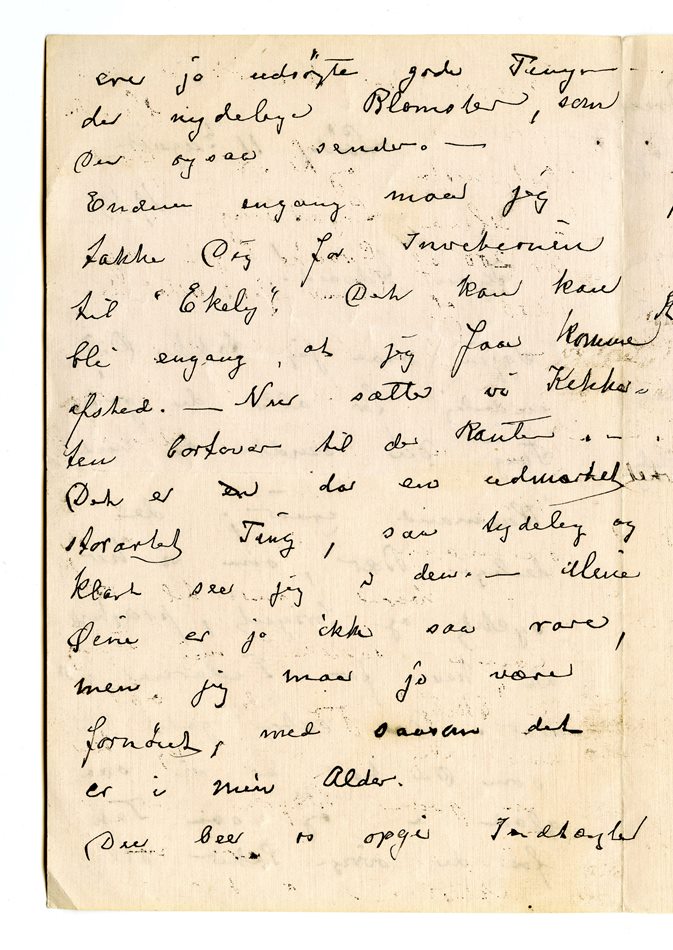 ere jo udsøgte gode Ting –
de nydelige Blomster, som
Du ogsaa sender. –
Endnu engang maa jeg
takke Dig for Invitationen
til "Ekely". Det kan kan
bli engang, at jeg faar komme
afsted. – Nu sætter vi Kikker-
ten bortover til de Kanter. –
Det er en da en udmærket
storartet Ting, saa tydelig og
klart seer jeg i den. – Mine
Øine er jo ikke saa rare,
men jeg maa jo være
fornøiet, med saasom det
er i min Alder.
Du beer os opgi Indtægter